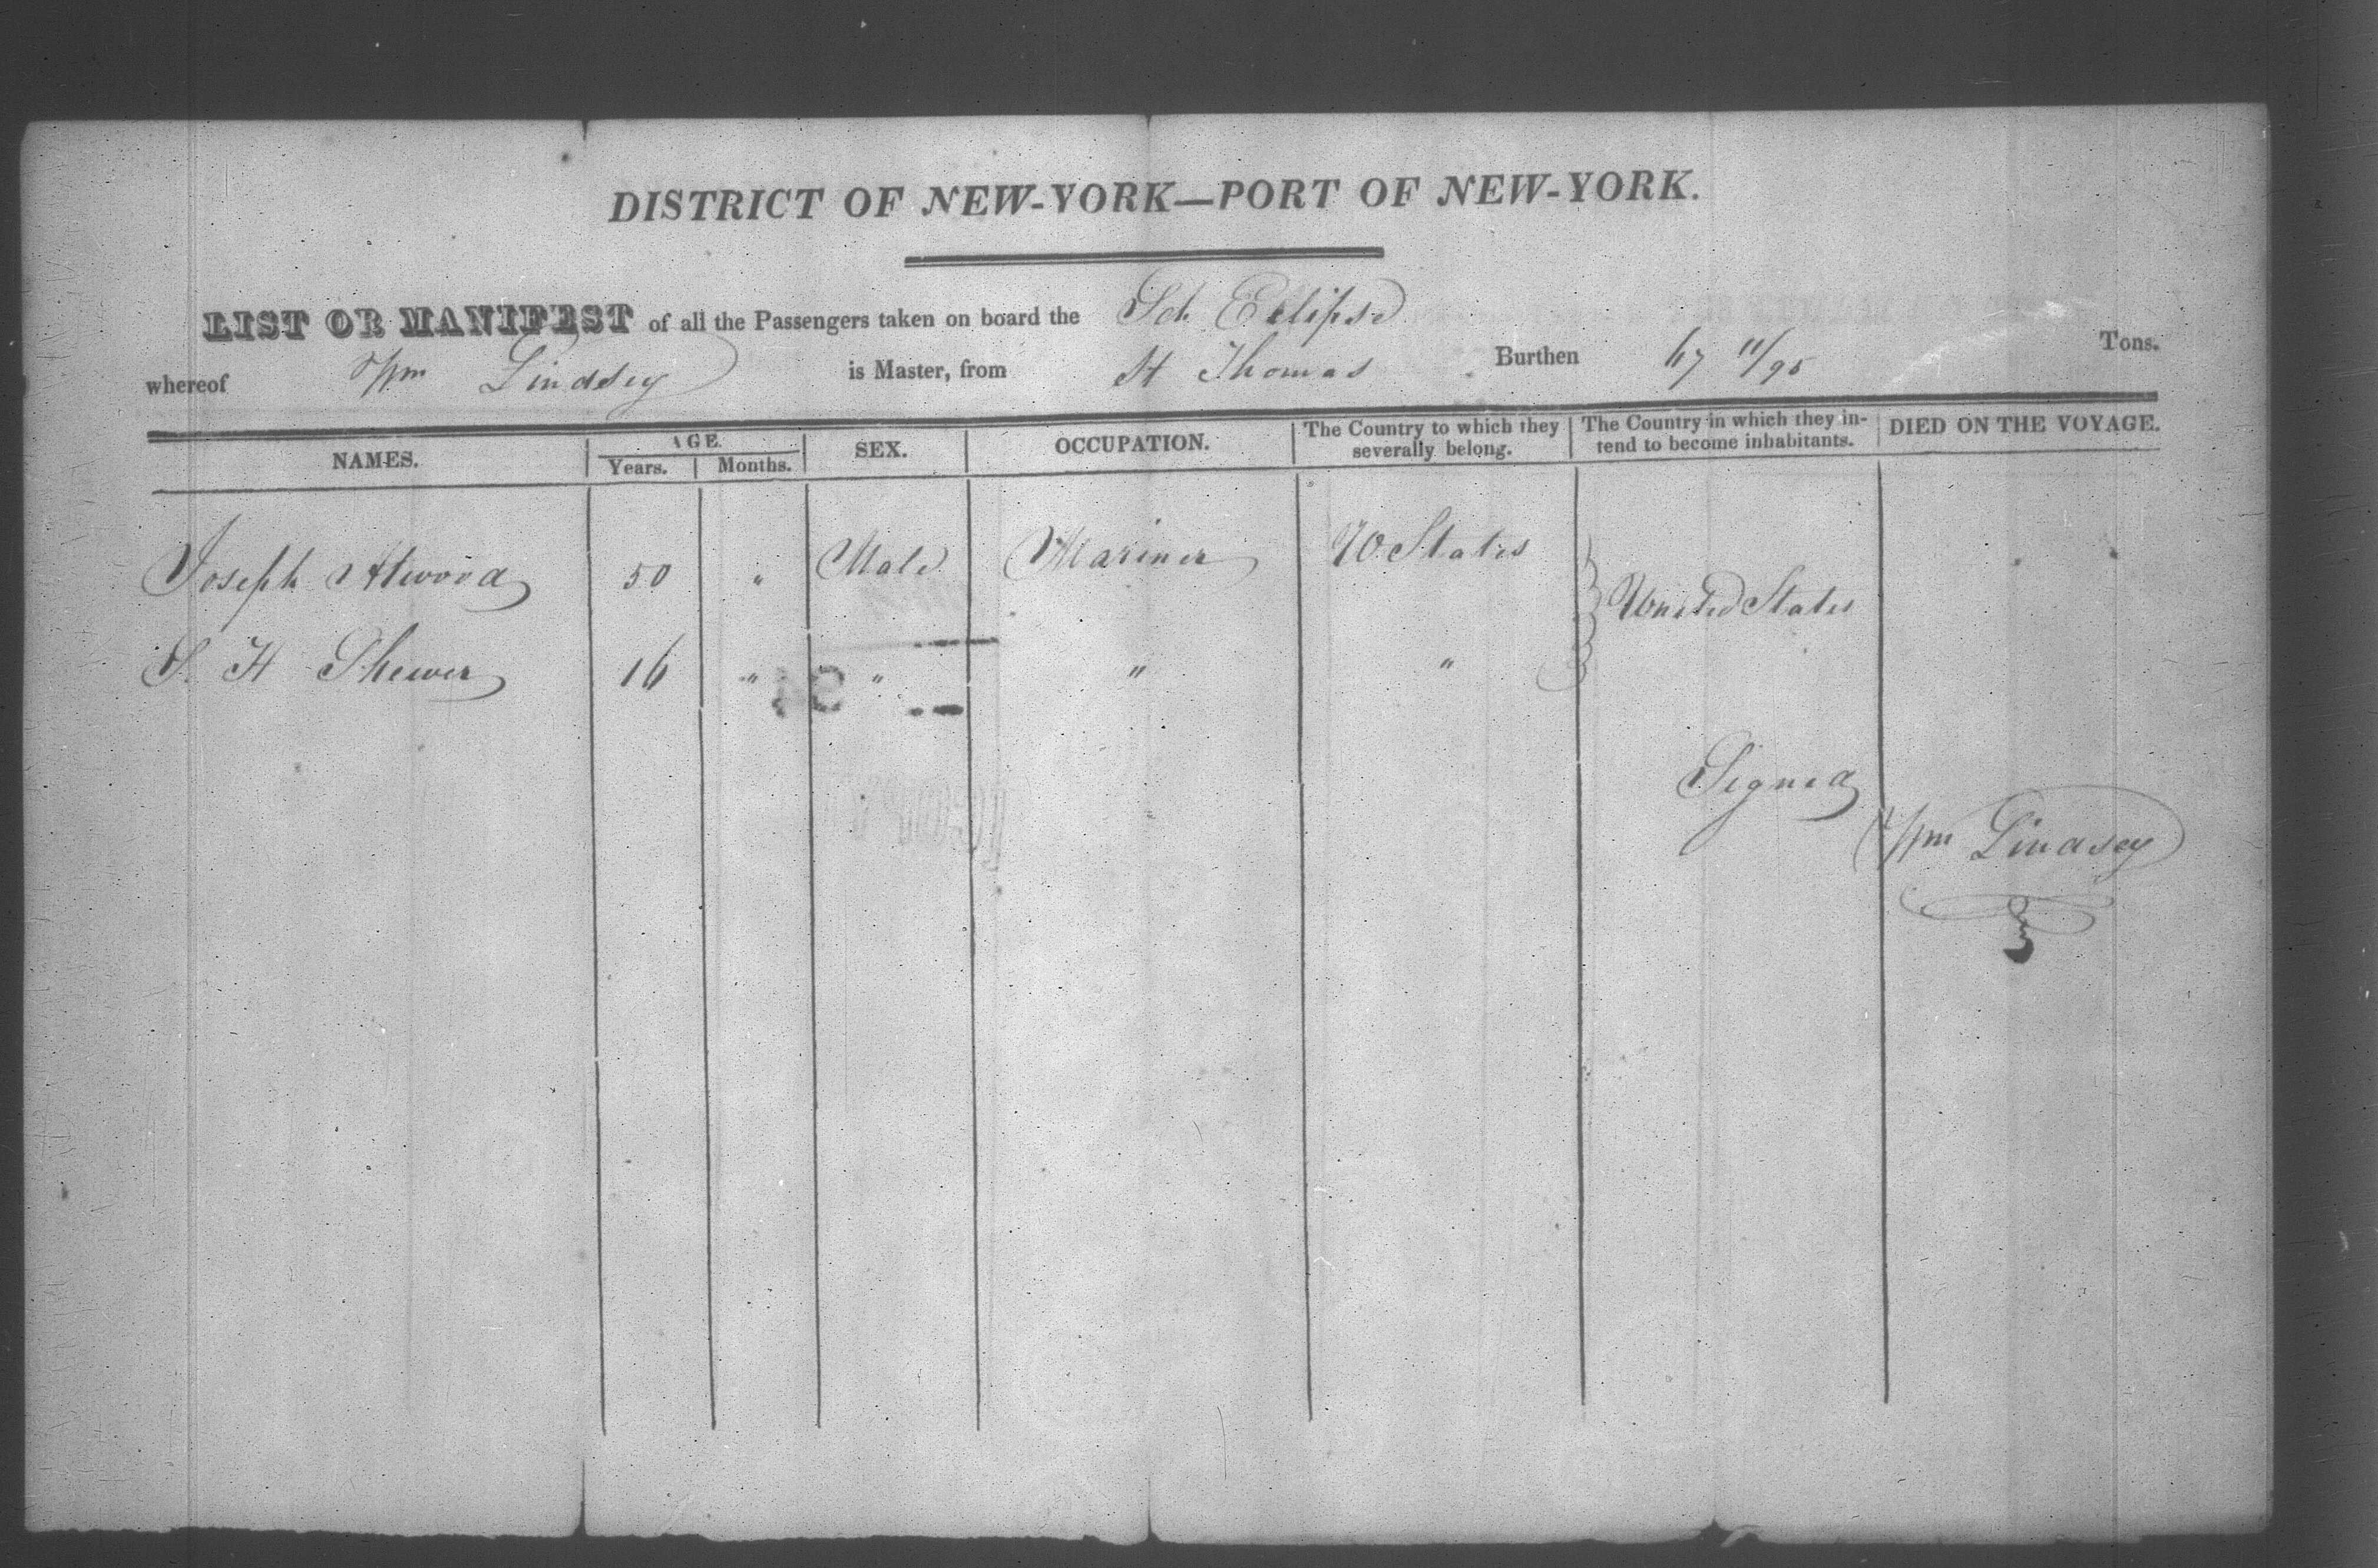 DISTRICT OF NEW-YORK—PORT OF NEW-YORK.
LIST OR MANIFEST of all the Passengers taken on board the Sch Eclipse
whereof Wm Lindsey is Master, from St Thomas Burthen 67 11/95 Tons.
NAMES. AGE. Years. Months. SEX. OCCUPATION. The Country to which they severally belong. The Country in which they intend to become inhabitants. DIED ON THE VOYAGE.
Joseph Atwood 50 " Male Mariner U. States
United States
S. H Shewer 16 " " " "
Signed
Wm Lindsey